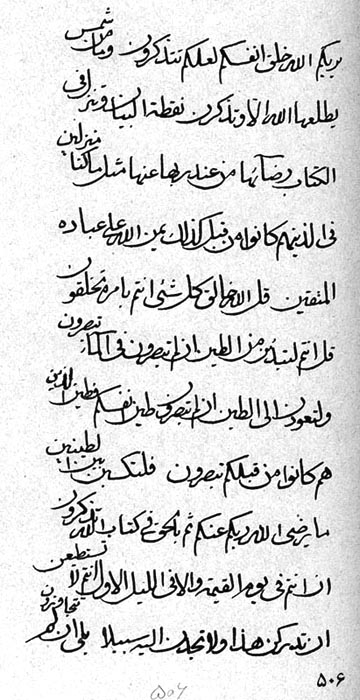 يريكم الله خلق انفسكم لعلكم تتذكرون وما من شمس
يطلعها الله الا وتذكرن نقطة البيان وتنزل في
الكتاب رضآئها من عند ربها عنها مثل ما كنا منزلين
في الذينهم كانوا من قبل كذلك يمن الله على عباده
المتقين قل الله خالق كل شئ انتم بامره تخلقون
قل انتم لتبدئن من الطين ان انتم تبصرون في
ولتعودن الى الطين ان انتم تبصرون طين نفسكم
هم كانوا من قبلكم تبصرون فلتكسبن
ما يرضى الله ربكم عنكم ثم بالحق في كتاب الله تذكرون
ان انتم في يوم القيمة والا في الليل الاول انتم لا تستطعن
ان تدركن هذا ولا تجدن اليه سبيلا بلى ان
٥٠۶
٥٠۶